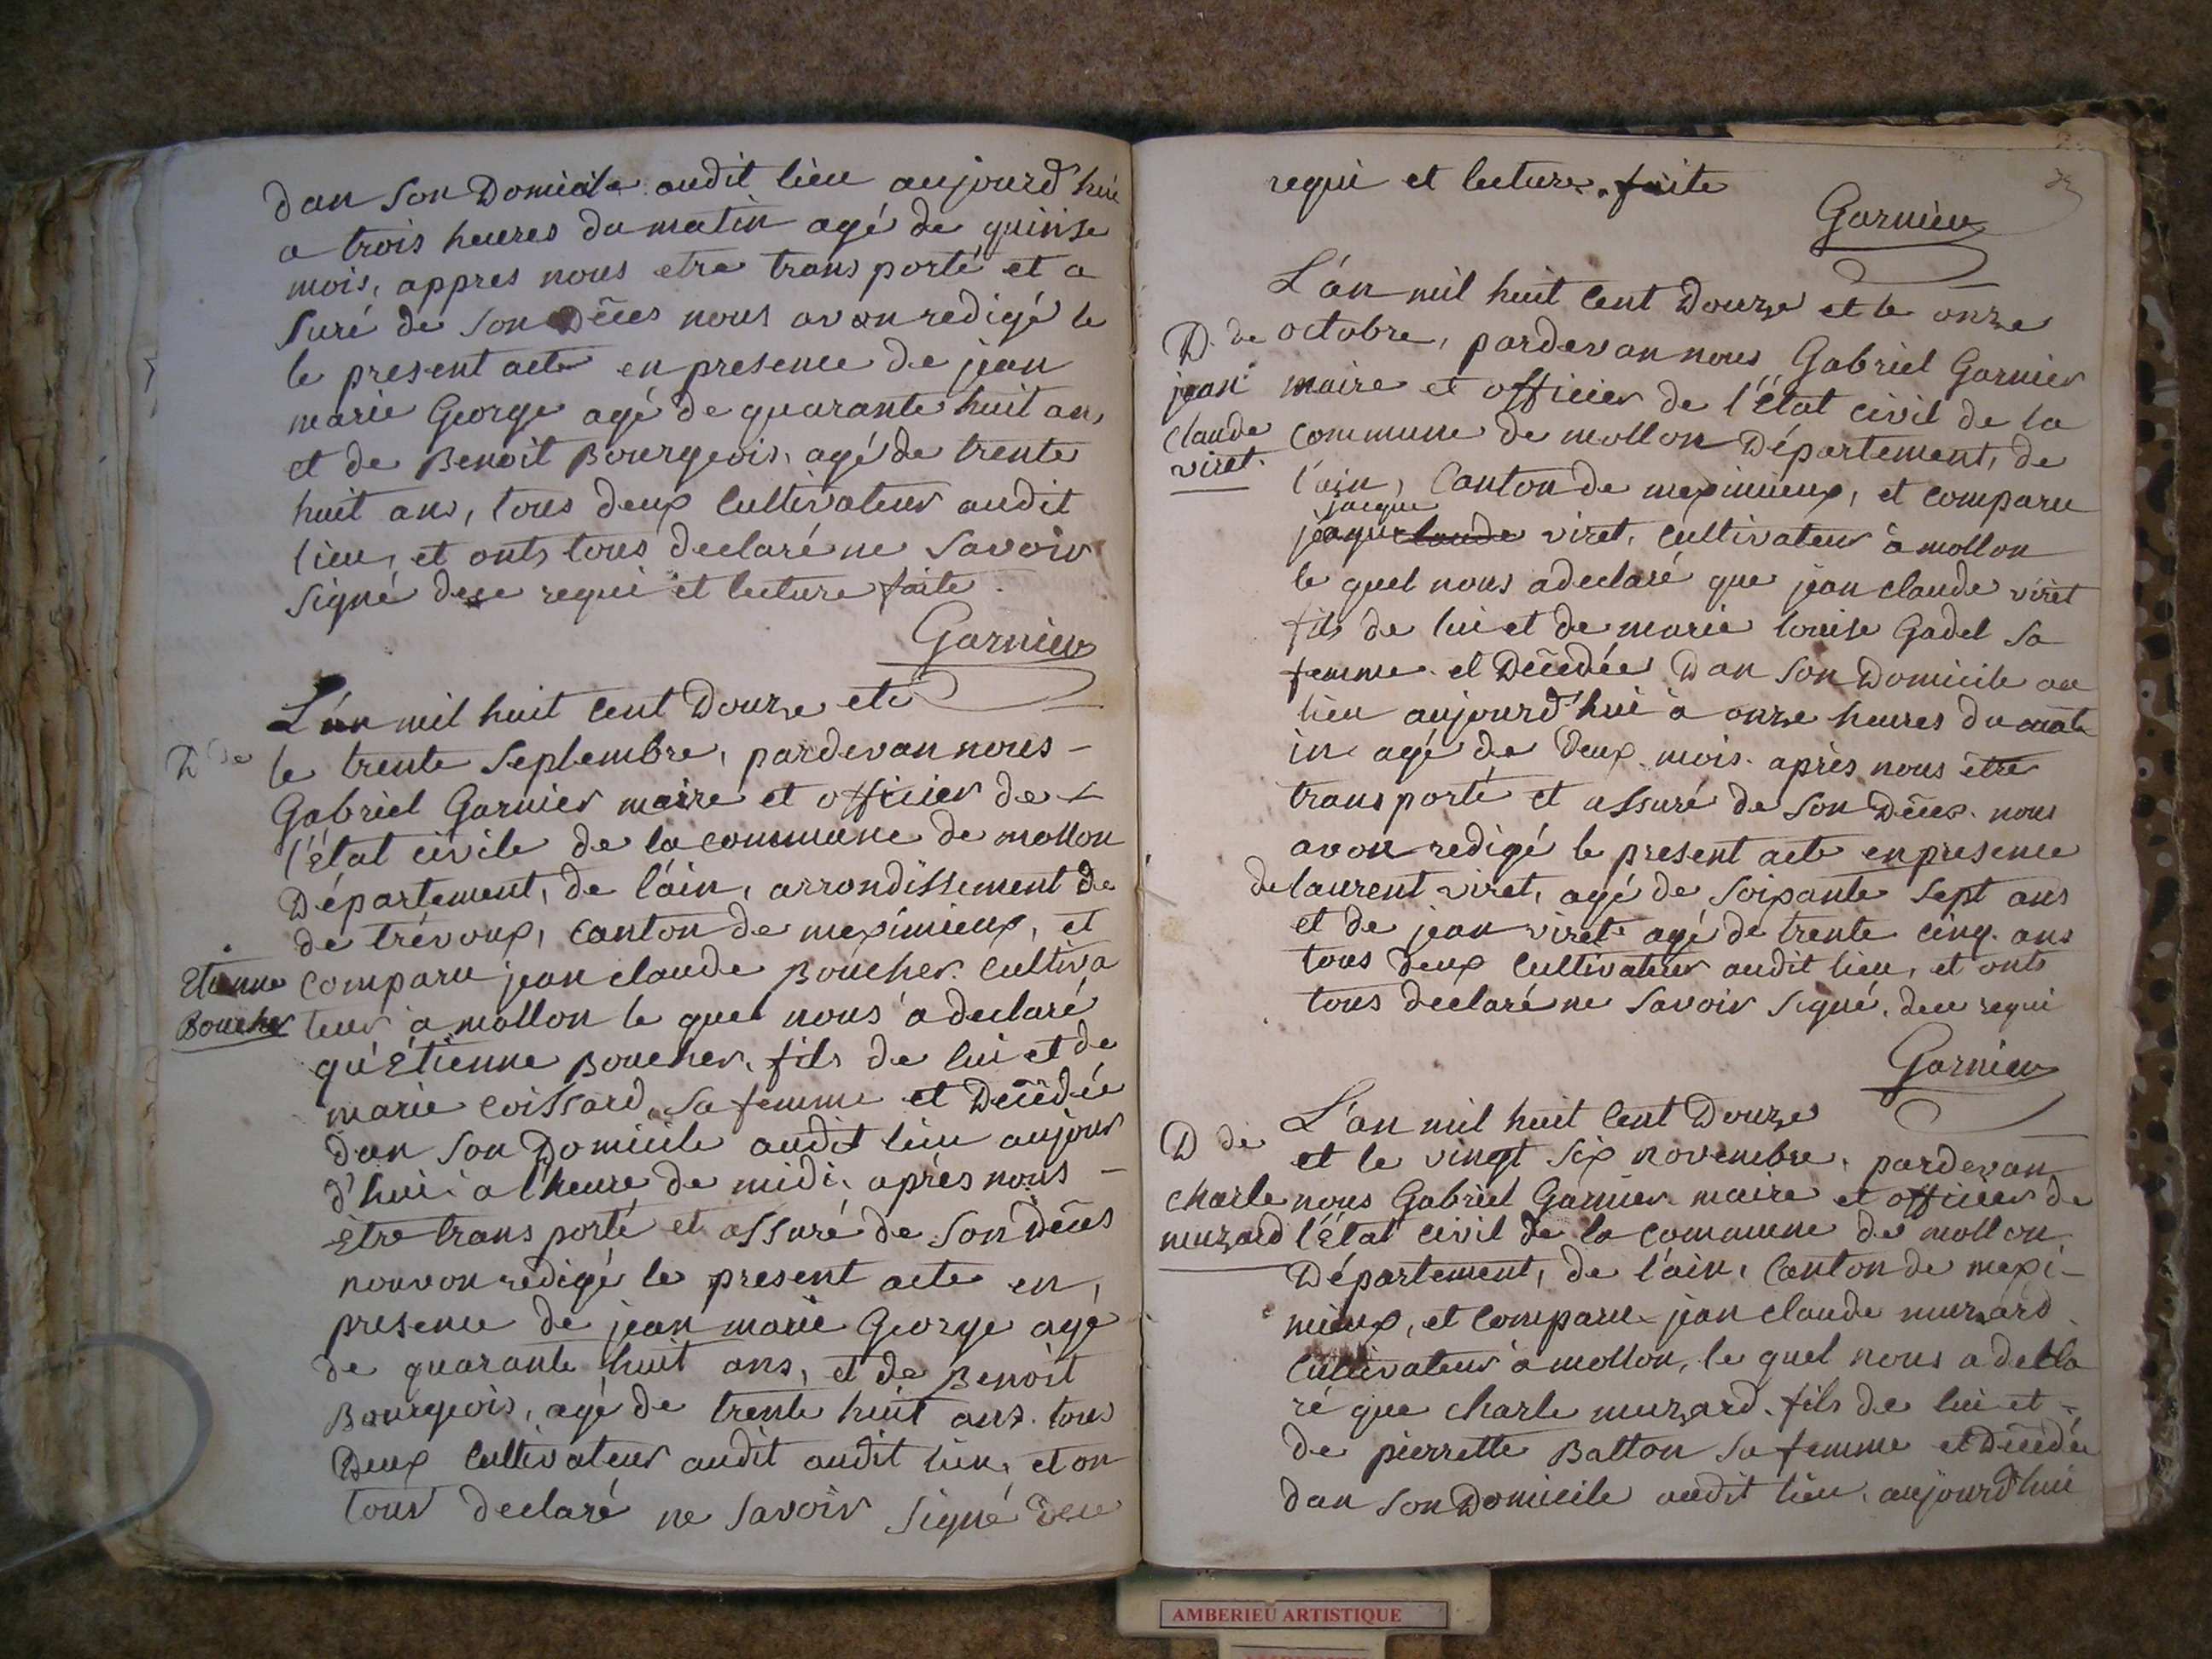 dan son Domicile audit lieu aujourd'hui
a trois heures du matin agé de quinse
mois, appres nous etre transporté et a
suré de son Dèces nous avon redigé le
le present acte en presence de jean
marie George agé de quarante huit an,
et de Benoit Bourgeois, agé de trente
huit ans, tous deux cultivateur audit
lieu, et onts tous declaré ne savoir
signé dece requi et lecture faite.
Garnier
L'an mil huit cent Douze et
D de
le trente septembre, pardevan nous -
Gabriel Garnier maire et officier de
l'état civile de la commune de mollon
Département, de l'ain, arrondissement de
de trévoux, canton de meximieux, et
Etienne
comparu jean claude Boucher cultiva
Boucher
teur à mollon le quel nous a declaré
qu'Etienne Boucher, fils de lui et de
marie coissard sa femme et Décédée
dan son Domicile audit lieu aujour
d'hui à l'heure de midi, après nous -
Etre transporté et assuré de son Dèces
nouvon redigé le present acte en,
presence de jean marie George agé
de quarante huit ans, et de Benoit
Bourgeois, agé de trente huit ans. tous
Deux cultivateur audit audit lieu, et on
tous declaré ne savoir signé dece
requi et lecture faite
Garnier
L'an mil huit cent Douze et le onze
D. de
octobre, pardevan nous Gabriel Garnier
jean
maire et officier de l'État civil de la
claude
commune de mollon Département, de
viret.
l'ain, Canton de meximieux, et comparu
jacque
claude viret, cultivateur à mollon
le quel nous a declaré que jean claude viret
fils de lui et de marie louise Gadel sa
femme et Décédée Dan son Domicile au
lieu aujourd'hui à onze heures du mat
in agé de deux mois. après nous être
transporté et assuré de son Dèces. nous
avon redigé le present acte en presence
de laurent viret, agé de soixante sept ans
et de jean viret agé de trente cinq ans
tous deux cultivateur audit lieu, et onts
tous declaré ne savoir signé, dece requi
Garnier
L'an mil huit cent Douze
D de
et le vingt six novembre, pardevan
charle
nous Gabriel Garnier maire et officier de
muzard
l'État civil de la commune de mollon
Département, de l'ain, Canton de mexi-
mieux, et comparu jean claude muzard
cultivateur à mollon, le quel nous a decla
ré que charle muzard, fils de lui et
de pierrette Batton sa femme et Décédée
dan son Domicile audit lieu, aujourd'hui
AMBERIEU ARTISTIQUE